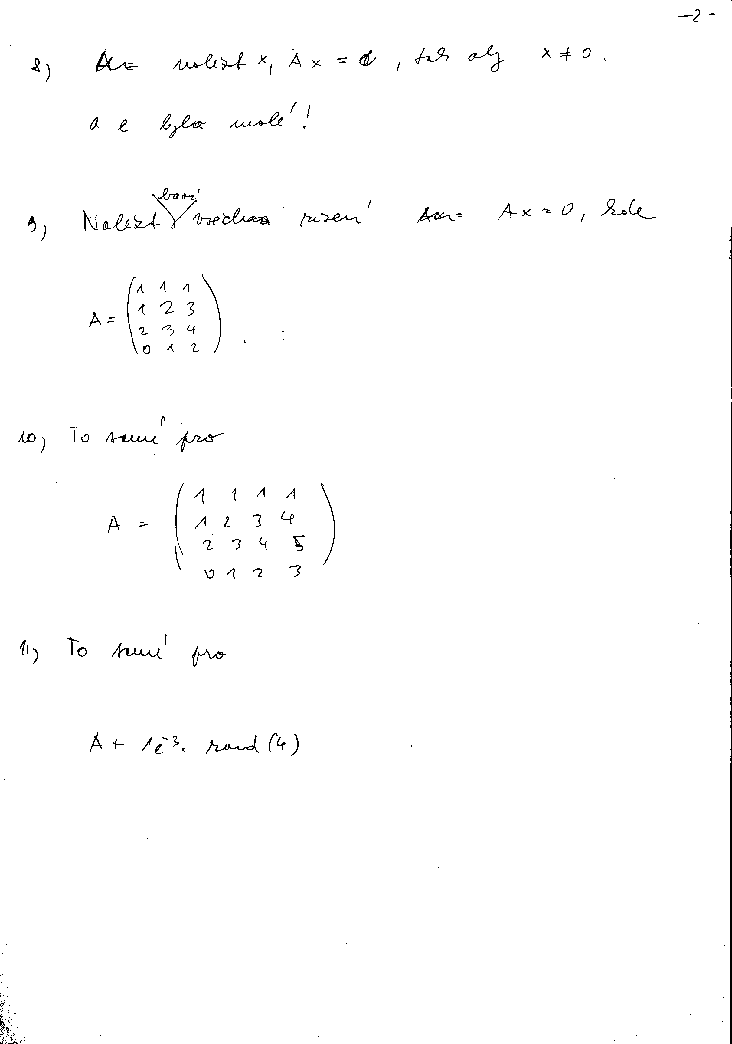 -2-
8) nalézt x, Ax = e, tak aby x ≠ 0.
a e bylo malé!
9) Nalézt bazi všechna řízení Ax = 0, kde
A = ( 1 1 1
1 2 3
2 3 4
0 1 2 ).
10) To samé pro
A = ( 1 1 1 1
1 2 3 4
2 3 4 5
0 1 2 3 )
11) To samé pro
A + 1e⁻³. rand(4)